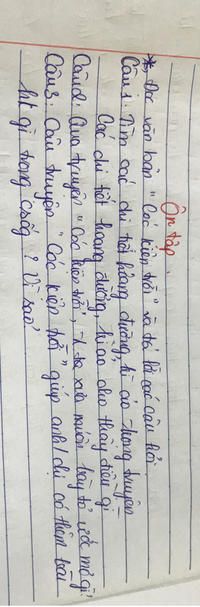 Ôn tập
*, Đọc văn bản "Cóc kiện trời" và trả lời các câu hỏi
Câu 1. Tìm các chi tiết hoang đường, kì ảo trong truyện
Các chi tiết hoang đường, kì ảo cho thấy điều gì
Câu 2. Qua truyện "Cóc kiện trời", xưa muốn bày tỏ ước mơ gì,
Câu 3. Câu truyện "Cóc kiện trời" giúp anh/chị có thêm bài
gì trong csống? Vì sao?